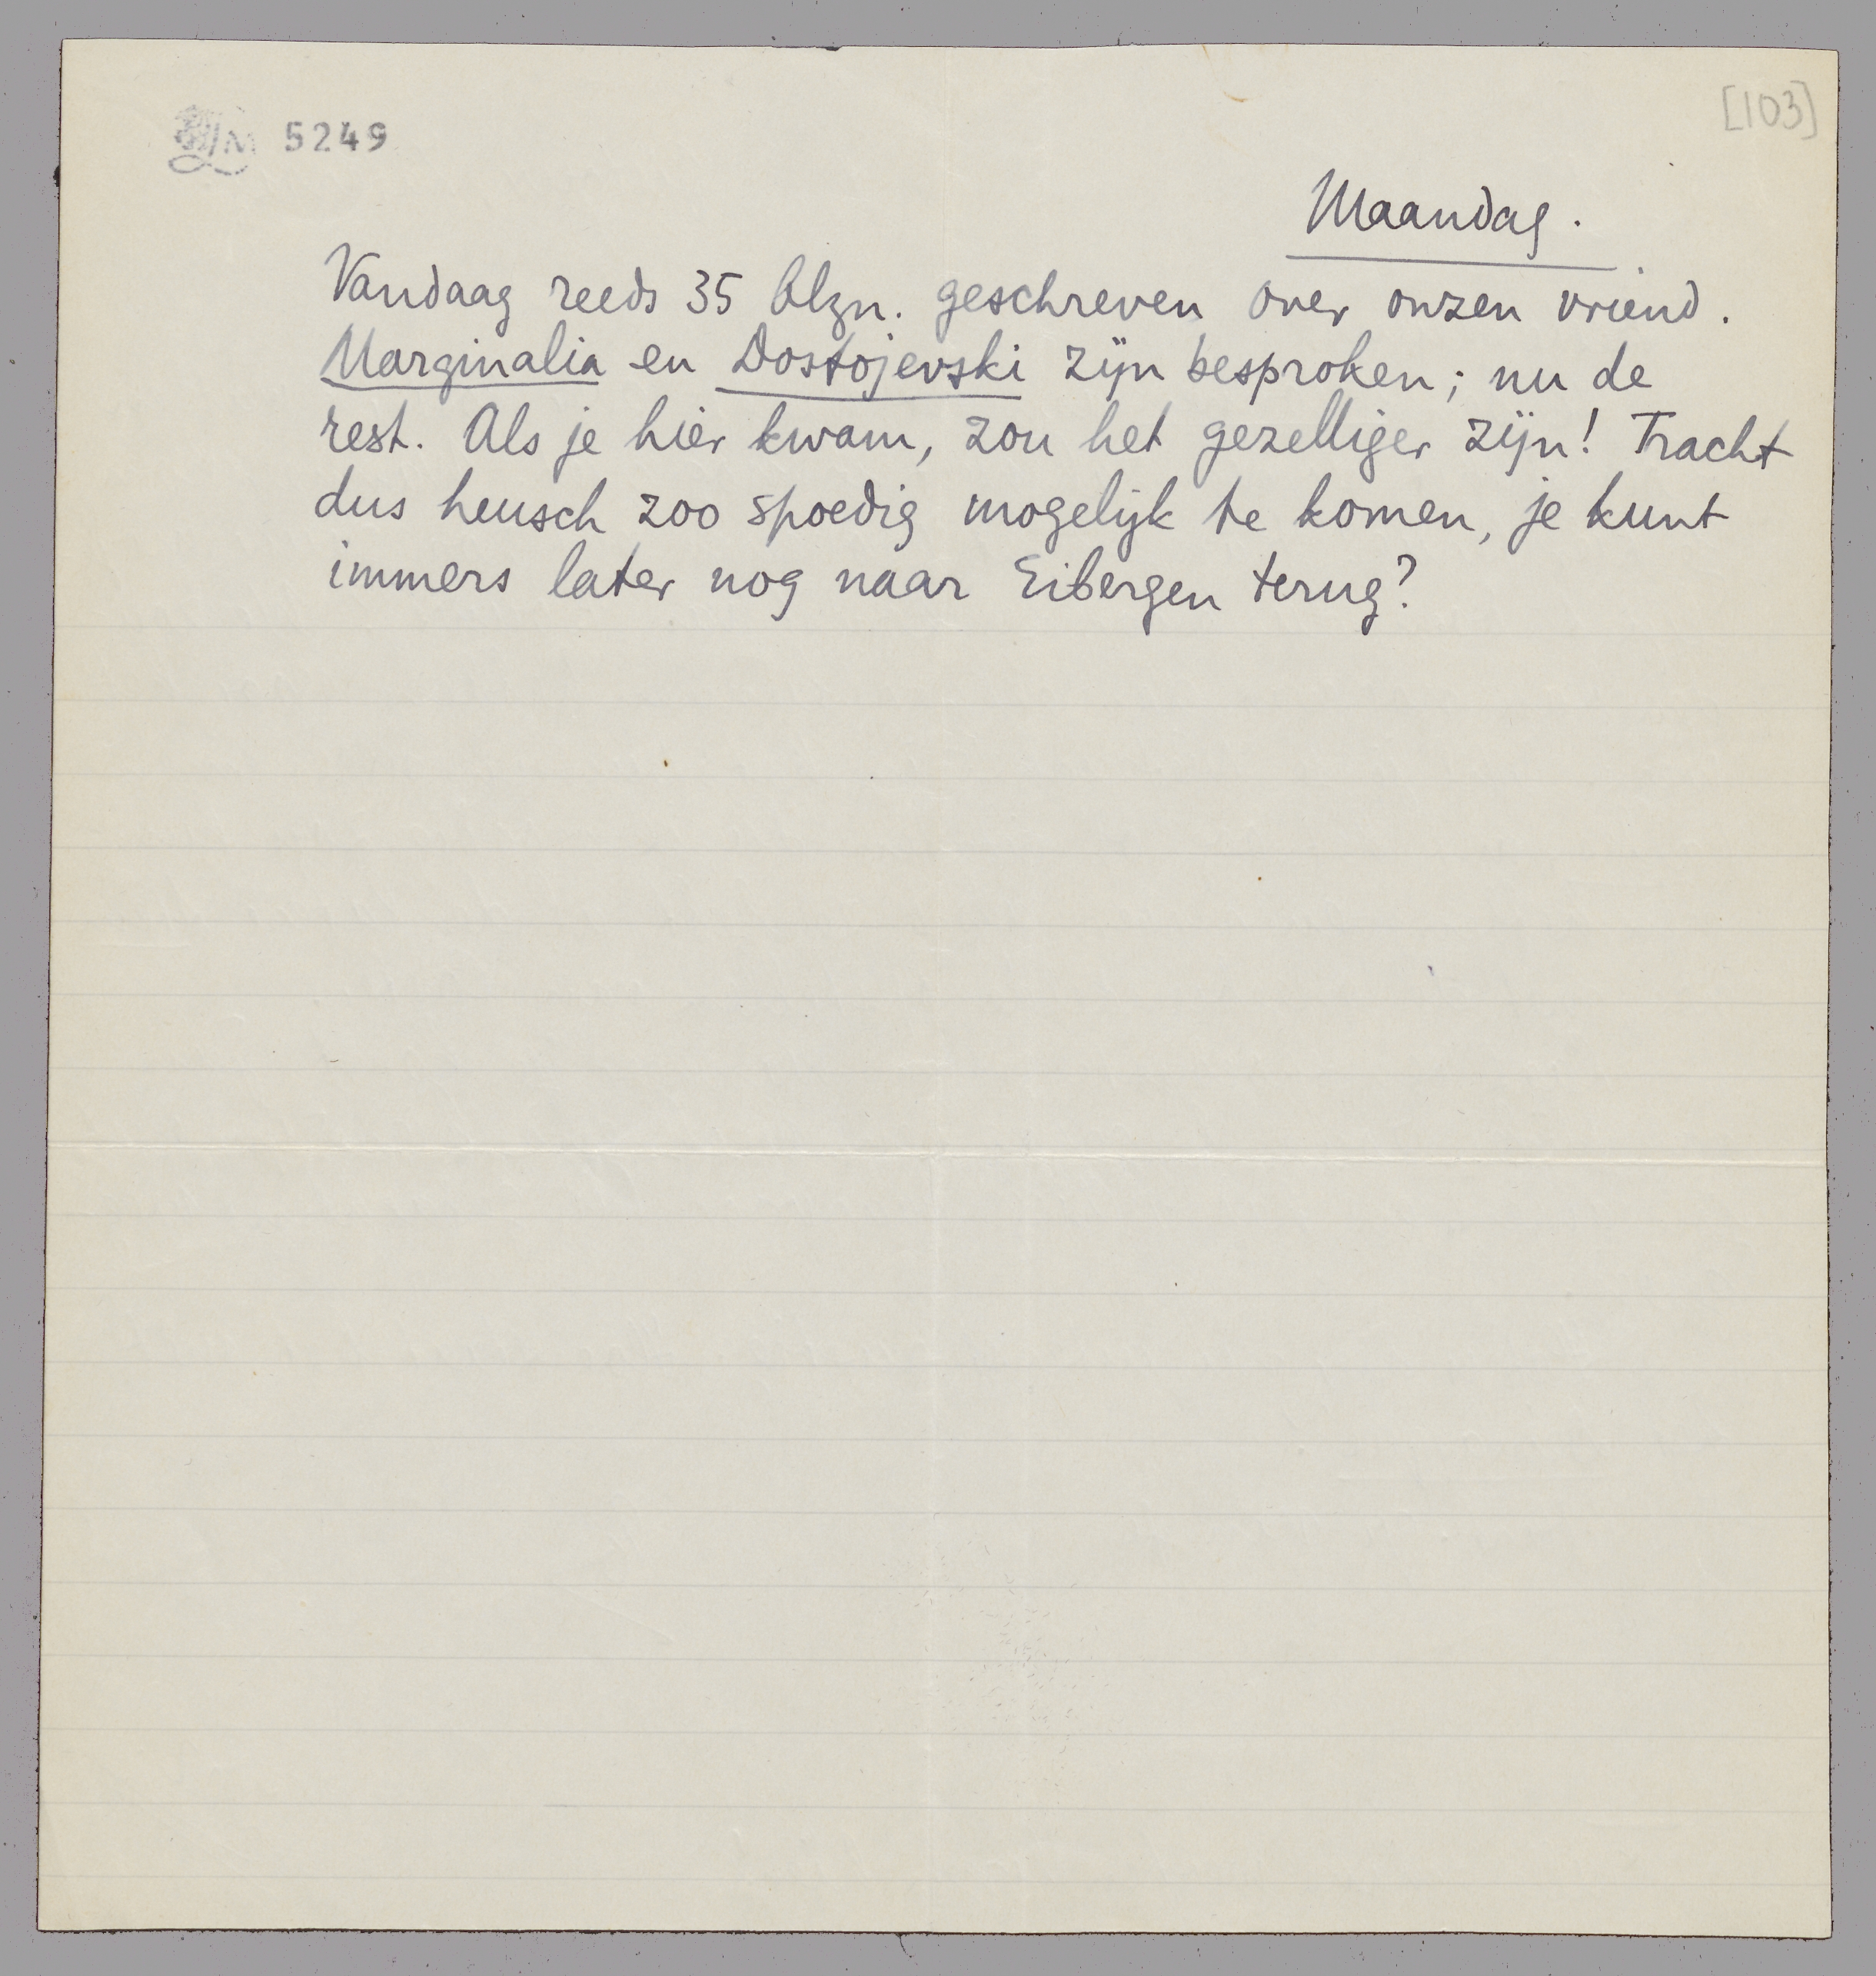 LM 5249
[103]
Maandag.
Vandaag reeds 35 blzn. geschreven over onzen vriend.
Marginalia en Dostojevski zijn besproken; nu de
rest. Als je hier kwam, zou het gezelliger zijn! Tracht
dus heusch zoo spoedig mogelijk te komen, je kunt
immers later nog naar Eibergen terug?